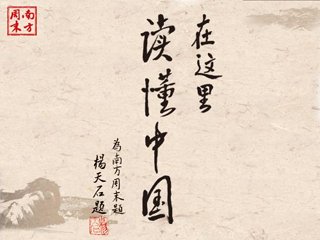 南方周末
在这里
读懂中国
為南方周末题
杨天石题